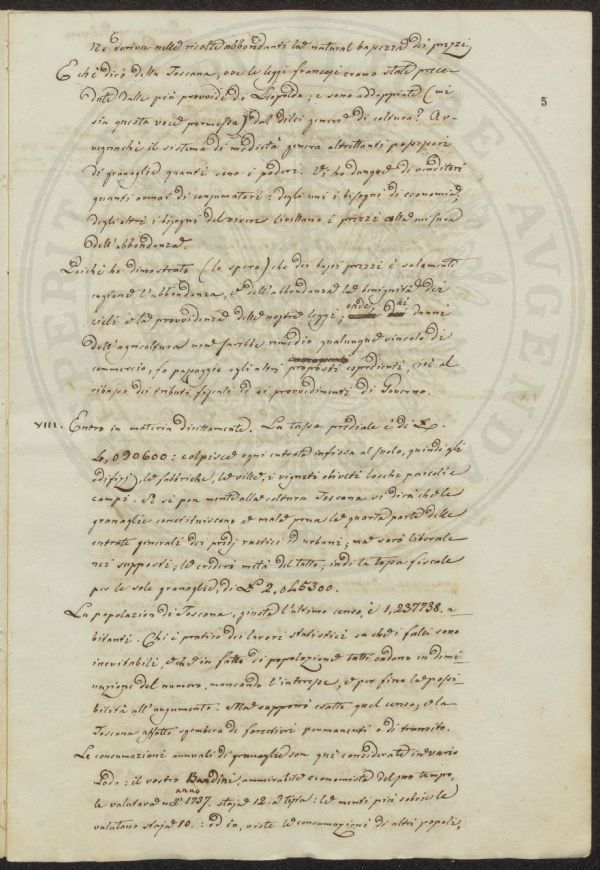 ne deriva nelle ricolte abbondanti la natural bassezza dei prezzi.
E che dirò della Toscana, ove le leggi francesi erano state prece
5
dute dalle più provvide di Leopoldo; e sono addoppiate (mi
sia questa voce permessa) dal dilei genere di coltura? Av-
vegnachè il sistema di medietà genera altrettanti possessori
di granaglie quanti sono i poderi. Vi ho dunque di venditori
quanti ormai di consumatori: degli uni i bisogni di economia,
degli altri i bisogni del vivere livellano i prezzi alla misura
dell'abbondanza.
Poichè ho dimostrato (lo spero) che dei bassi prezzi è solamente
cagione l'abbondanza, e dell'abbondanza la benignità dei
cieli e la provvidenza delle nostre leggi; onde, ai danni
dell'agricoltura non sarebbe rimedio qualunque vincolo di
commercio, fo passaggio agli altri proposti espedienti, cioè al
ribasso dei tributi fiscali ed ai provvedimenti di Governo.
VIII. Entro in materia direttamente. La tassa prediale è di £.
4,090600: colpisce ogni entrata infissa al suolo, quindi gli
edifizj, le fabbriche, le ville, i vigneti oliveti boschi pascoli e
campi. Se si pon mente alla coltura Toscana si dirà che le
granaglie constituiscono a mala pena la quarta parte delle
entrate generali dei predj rustici ed urbani; ma sarò liberale
nei supposti; le crederò metà del tutto, indi la tassa fiscale
per le sole granaglie, di £ 2,045300.
La popolazion di Toscana, giusta l'ultimo censo, è 1,237738. a-
bitanti. Chi è pratico dei lavori statistici sa che i falli sono
inevitabili, e che in fatto di popolazione tutti cadono in dimi-
nuzione del numero, mancando l'interesse, e per fino la possi-
bilità all'augumento. Ma supporrò esatto quel censo, e la
Toscana affatto sgombera di forestieri permanenti o di transito.
Le consumazioni annuali di granaglie son quì considerate in vario
modo: il vostro Bandini, ammirabile economista del suo tempo,
le valutava nell' anno 1737. staja 12. a testa: le menti più sobrie le
valutano staja 10.: ed io, viste le consumazioni di altri popoli,